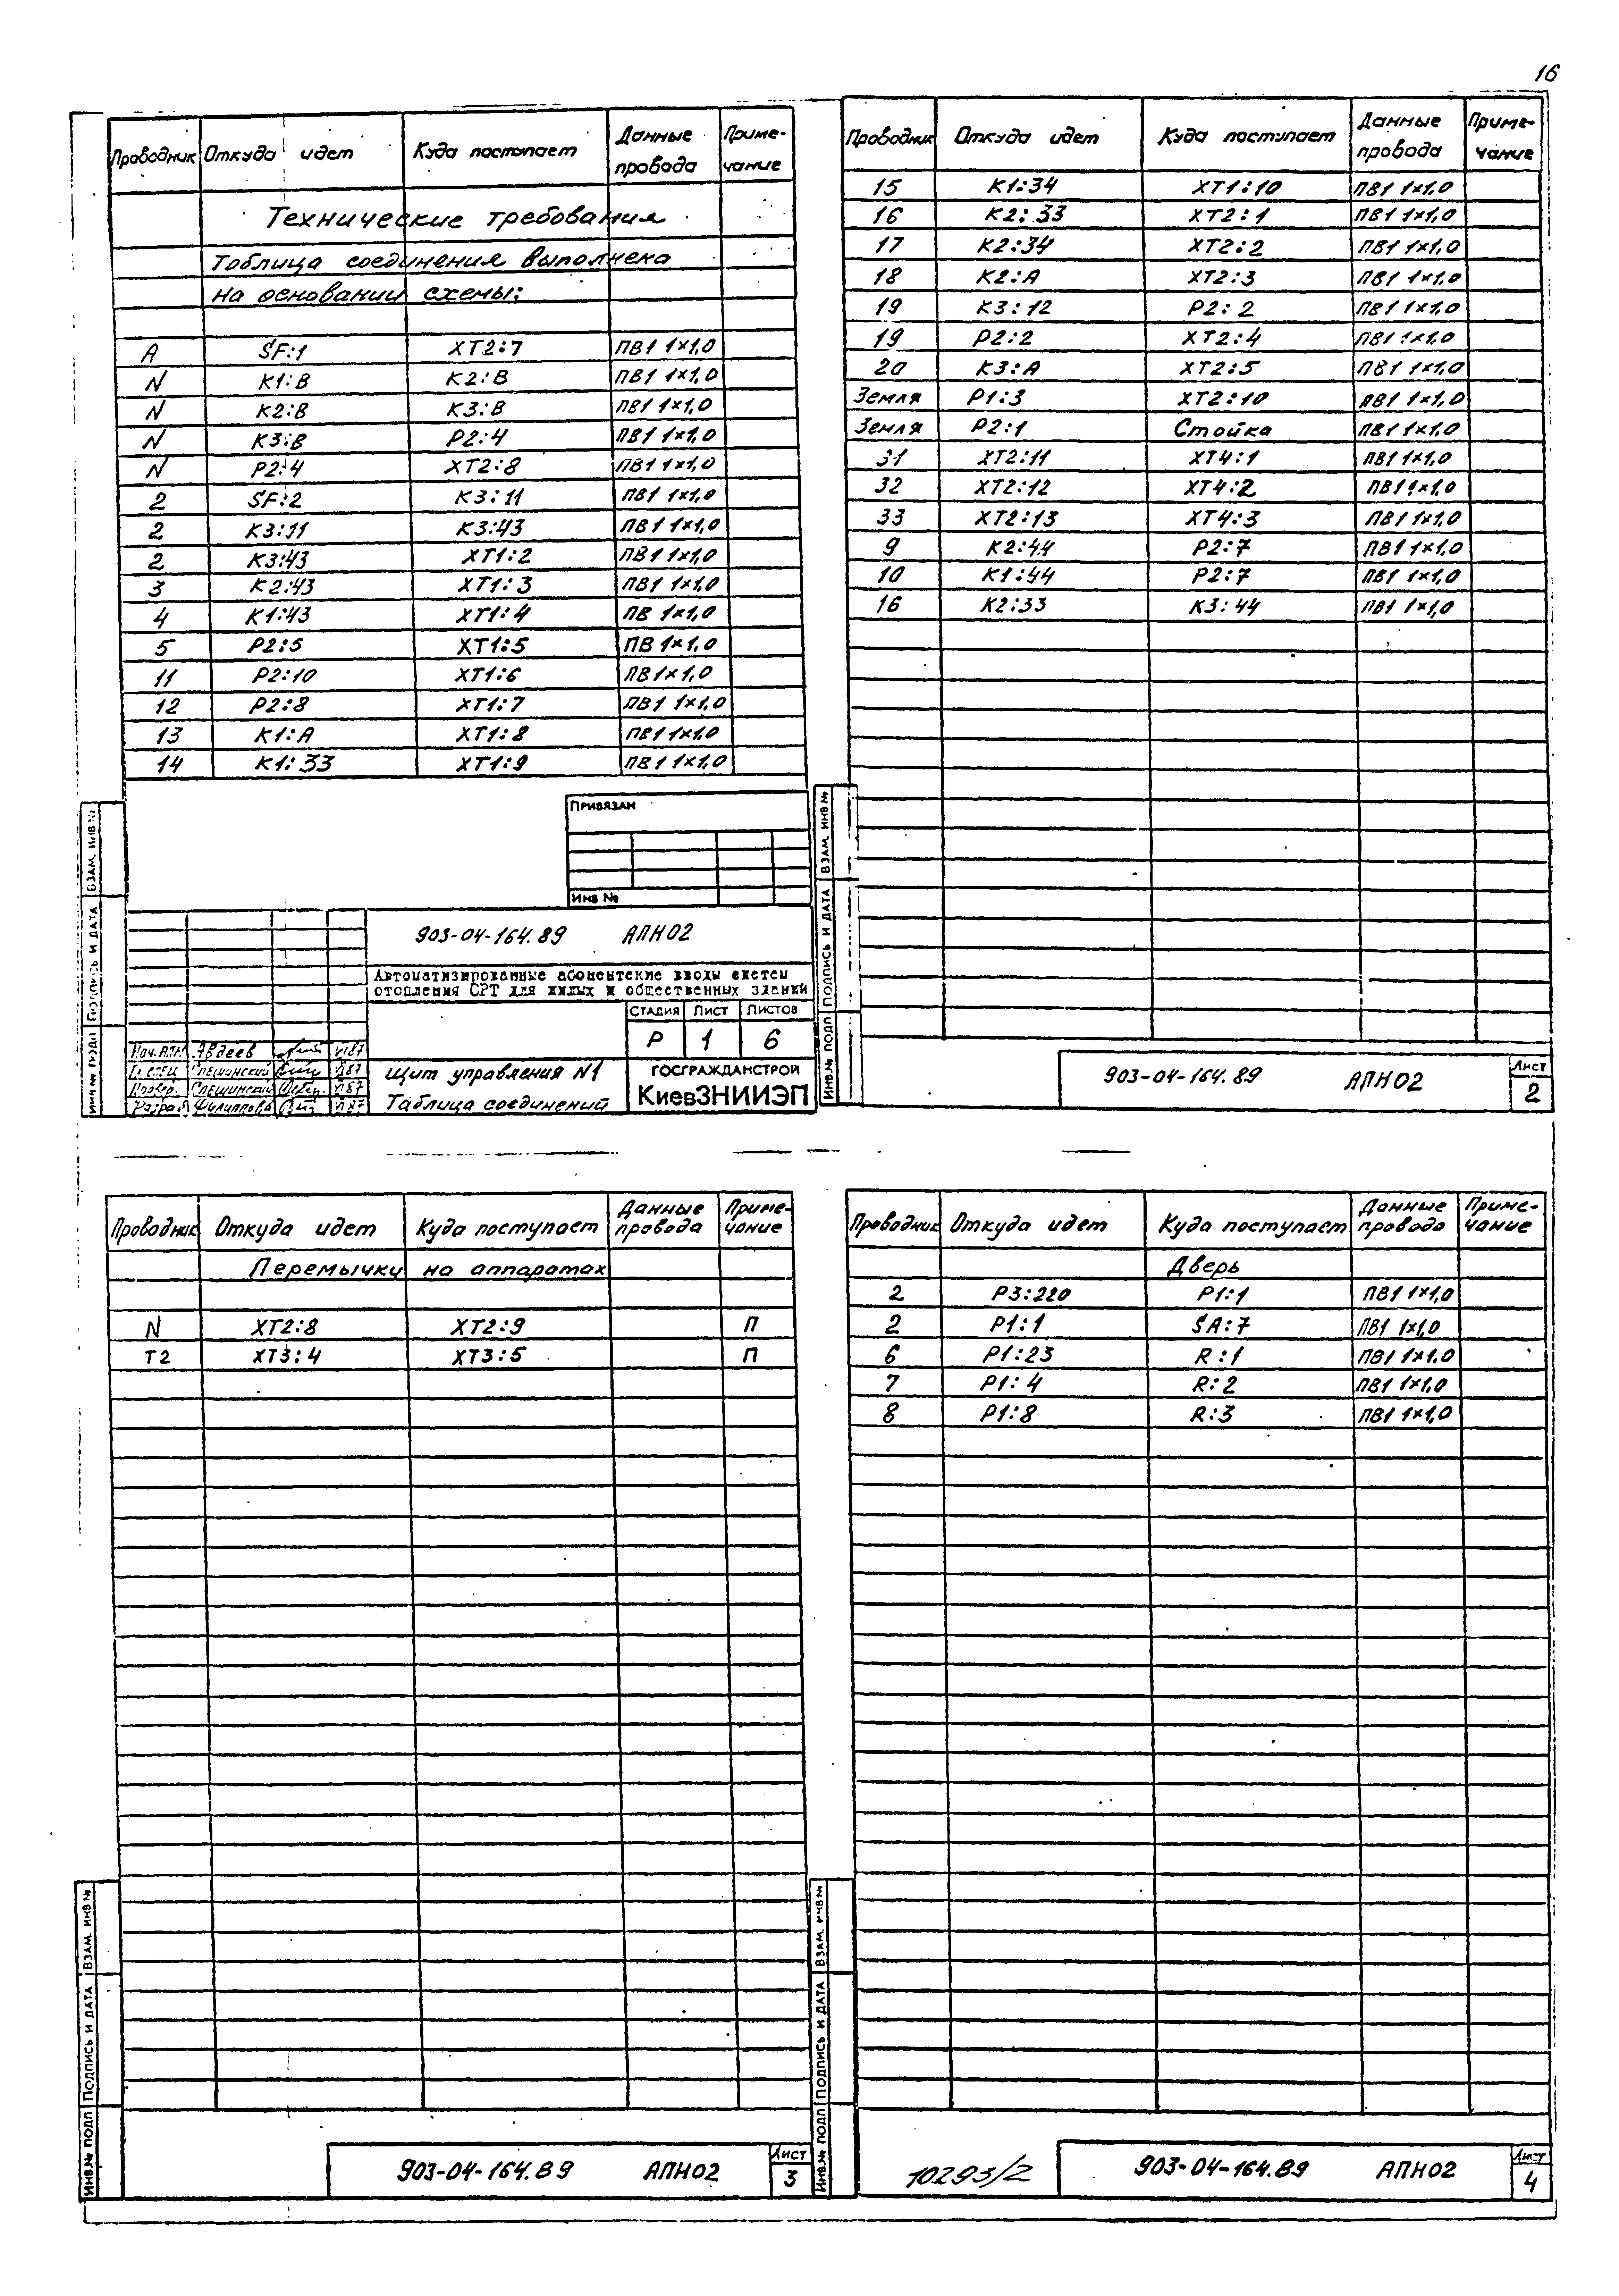 16
Проводник Откуда идет Куда поступает Данные провода Примечание
Технические требования
Таблица соединения выполнена
на основании схемы:
А SF:1 XT2:7 ПВ1 1×1,0
N К1:В К2:В ПВ1 1×1,0
N К2:В К3:В ПВ1 1×1,0
N К3:В Р2:4 ПВ1 1×1,0
N Р2:4 XT2:8 ПВ1 1×1,0
2 SF:2 К3:11 ПВ1 1×1,0
2 К3:11 К3:43 ПВ1 1×1,0
2 К3:43 XT1:2 ПВ1 1×1,0
3 К2:43 XT1:3 ПВ1 1×1,0
4 К1:43 XT1:4 ПВ 1×1,0
5 Р2:5 XT1:5 ПВ 1×1,0
11 Р2:10 XT1:6 ПВ1×1,0
12 Р2:8 XT1:7 ПВ1 1×1,0
13 К1:А XT1:8 ПВ1 1×1,0
14 К1:33 XT1:9 ПВ1 1×1,0
Привязан
Инв №
903-04-164.89 АПН02
Автоматизированные абонентские вводы систем
отопления СРТ для жилых и общественных зданий
Стадия Лист Листов
Р 1 6
Нач.АПН Авдеев VI87
Гл спец Слешинский VI87
Провер. Слешинский VI87
Разраб Филиппова VI87
Щит управления N1
Таблица соединений
ГОСГРАЖДАНСТРОЙ
КиевЗНИИЭП
Инв № подл Подпись и дата Взам. инв №
Проводник Откуда идет Куда поступает Данные провода Примечание
15 К1:34 XT1:10 ПВ1 1×1,0
16 К2:33 XT2:1 ПВ1 1×1,0
17 К2:34 XT2:2 ПВ1 1×1,0
18 К2:А XT2:3 ПВ1 1×1,0
19 К3:12 Р2:2 ПВ1 1×1,0
19 Р2:2 XT2:4 ПВ1 1×1,0
20 К3:А XT2:5 ПВ1 1×1,0
Земля Р1:3 XT2:10 ПВ1 1×1,0
Земля Р2:1 Стойка ПВ1 1×1,0
31 XT2:11 XT4:1 ПВ1 1×1,0
32 XT2:12 XT4:2 ПВ1 1×1,0
33 XT2:13 XT4:3 ПВ1 1×1,0
9 К2:44 Р2:7 ПВ1 1×1,0
10 К1:44 Р2:7 ПВ1 1×1,0
16 К2:33 К3:44 ПВ1 1×1,0
Инв.№ подл Подпись и дата Взам. инв №
903-04-164.89 АПН02
Лист
2
Проводник Откуда идет Куда поступает Данные провода Примечание
Перемычки на аппаратах
N XT2:8 XT2:9 П
Т2 XT3:4 XT3:5 П
Инв.№ подл Подпись и дата Взам. инв №
903-04-164.89 АПН02
Лист
3
Проводник Откуда идет Куда поступает Данные провода Примечание
Дверь
2 Р3:220 Р1:1 ПВ1 1×1,0
2 Р1:1 SA:7 ПВ1 1×1,0
6 Р1:23 R:1 ПВ1 1×1,0
7 Р1:4 R:2 ПВ1 1×1,0
8 Р1:8 R:3 ПВ1 1×1,0
Инв.№ подл Подпись и дата Взам. инв №
10293/2
903-04-164.89 АПН02
Лист
4